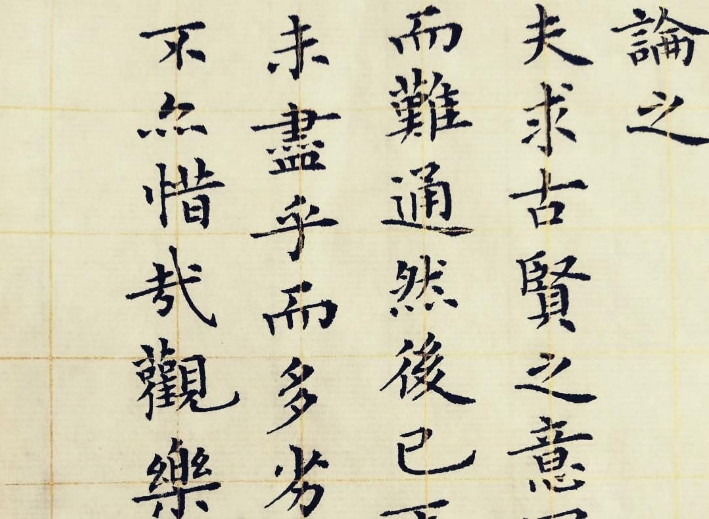 論之
夫求古賢之意
而難通然後已
未盡乎而多劣
不亦惜哉觀樂